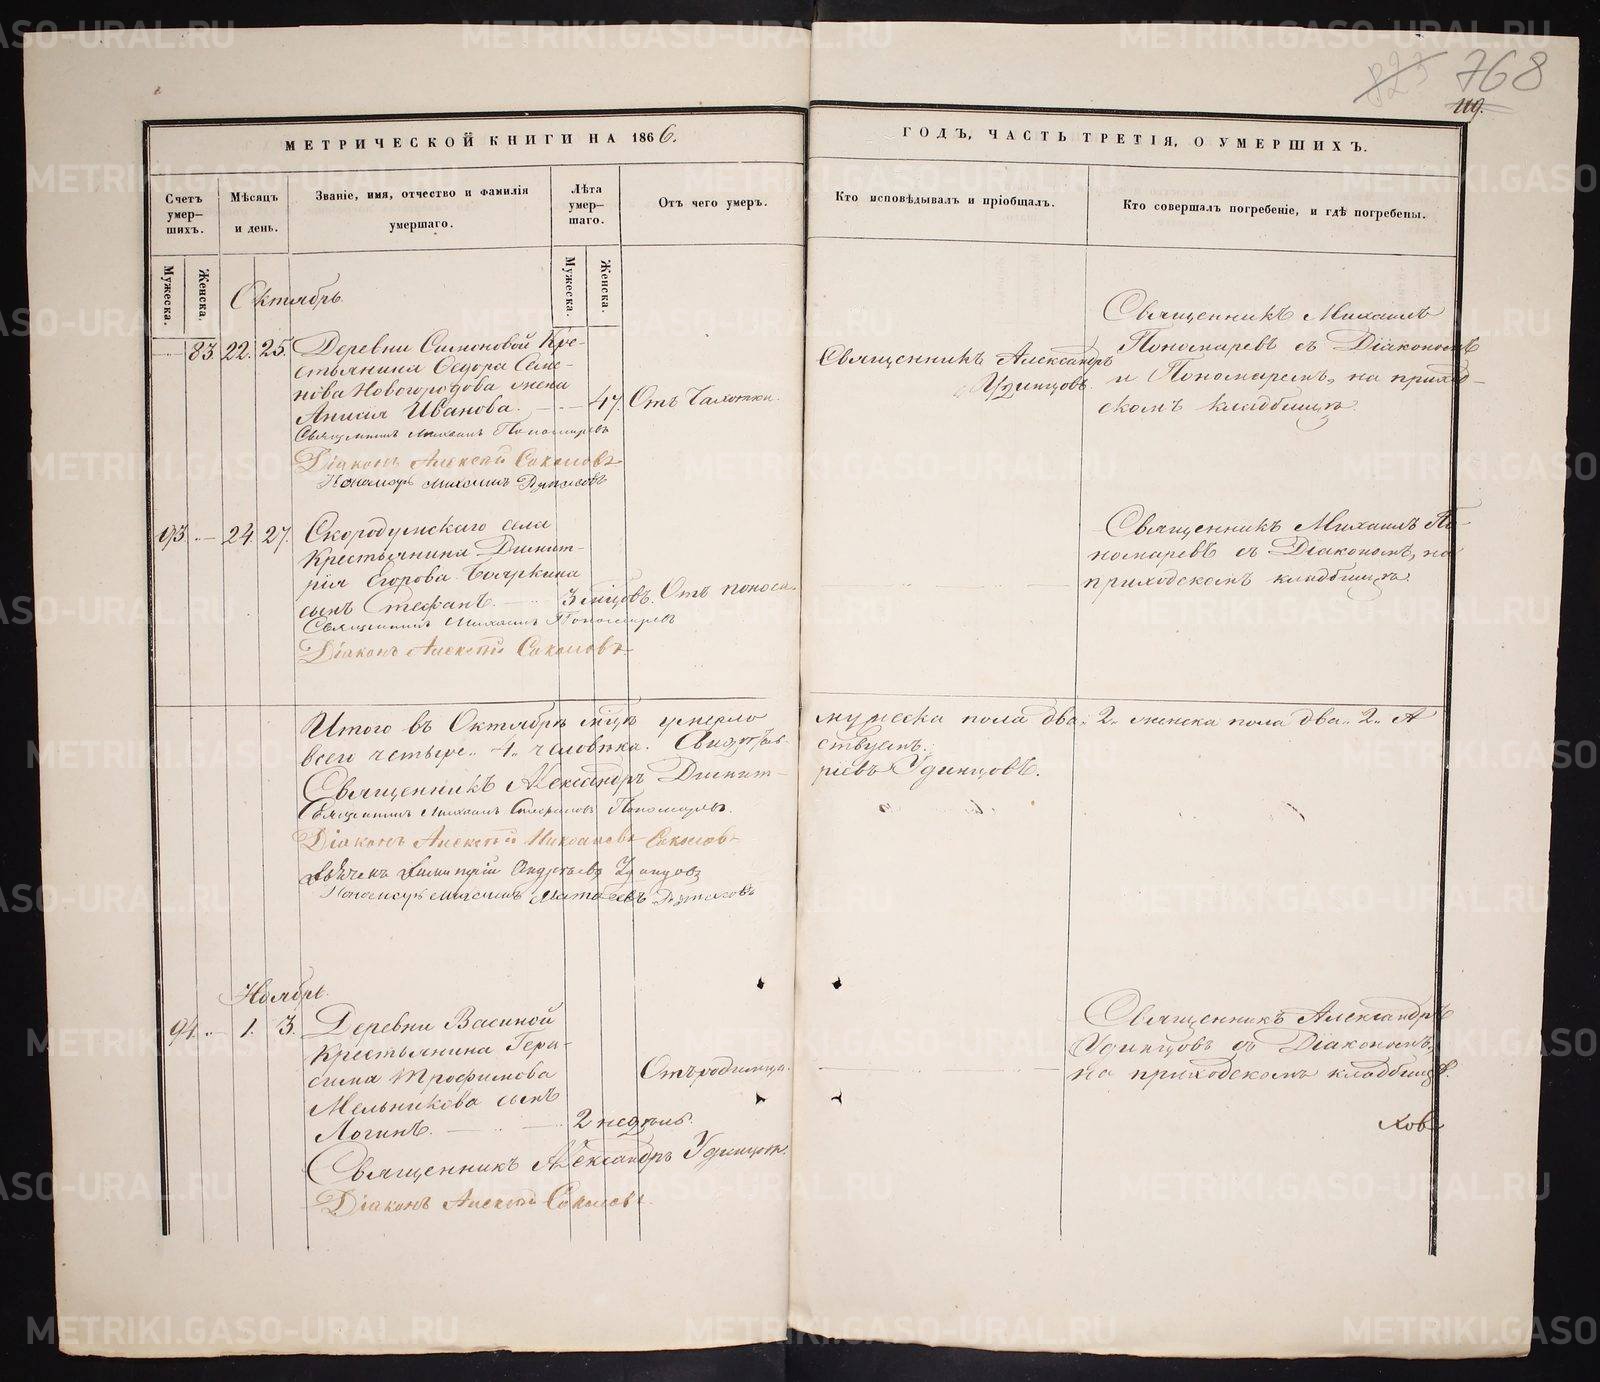 768
119.
МЕТРИЧЕСКОЙ КНИГИ НА 1866.
ГОДЪ, ЧАСТЬ ТРЕТІЯ, О УМЕРШИХЪ.
Счетъ умер-шихъ.
Мѣсяцъ и день.
Званіе, имя, отчество и фамилія умершаго.
Лѣта умер-шаго.
Отъ чего умеръ.
Кто исповѣдывалъ и пріобщалъ.
Кто совершалъ погребеніе, и гдѣ погребены.
Мужеска.
Женска.
Мужеска.
Женска.
Октябрь
83. 22. 25. Деревни Симоновой Кре-
стьянина Ѳедора Семе-
нова Новогородова жена
Анисія Иванова. 47. Отъ Чахотки.
Священникъ Михаилъ Пономаревъ
Діаконъ Алексѣй Соколовъ
Пономарь Михаилъ
Священникъ Александръ
Удинцовъ.
Священникъ Михаилъ
Пономаревъ съ Діакономъ
и Пономаремъ, на приход-
скомъ кладбищѣ.
93. 24. 27. Скородумскаго села
Крестьянина Димит-
рія Егорова Бояркина
сынъ Стефанъ. 3 мѣцовъ. Отъ поноса.
Священникъ Михаилъ Пономаревъ
Діаконъ Алексѣй Соколовъ
Священникъ Михаилъ По-
номаревъ съ Діакономъ, на
приходскомъ кладбищѣ.
Итого въ Октябрѣ мѣцѣ умерло мужеска пола два. 2. женска пола два. 2. А
всего четыре. 4. человѣка. Свидѣтель-ствуемъ.
Священникъ Александръ Димит-ріевъ Удинцовъ.
Священникъ Михаилъ Стефановъ Пономаревъ.
Діаконъ Алексѣй Николаевъ Соколовъ
Дьячекъ Димитрій Андреевъ Удинцовъ
Пономарь Михаилъ Матвѣевъ
Ноябрь.
94. 1. 3. Деревни Васиной
Крестьянина Гера-
сима Трофимова
Мельникова сынъ
Логинъ. 2 недѣль. Отъ родимца.
Священникъ Александръ Удинцовъ.
Діаконъ Алексѣй Соколовъ.
Священникъ Александръ
Удинцовъ съ Діакономъ,
на приходскомъ кладбищѣ.
ховъ
METRIKI.GASO-URAL.RU